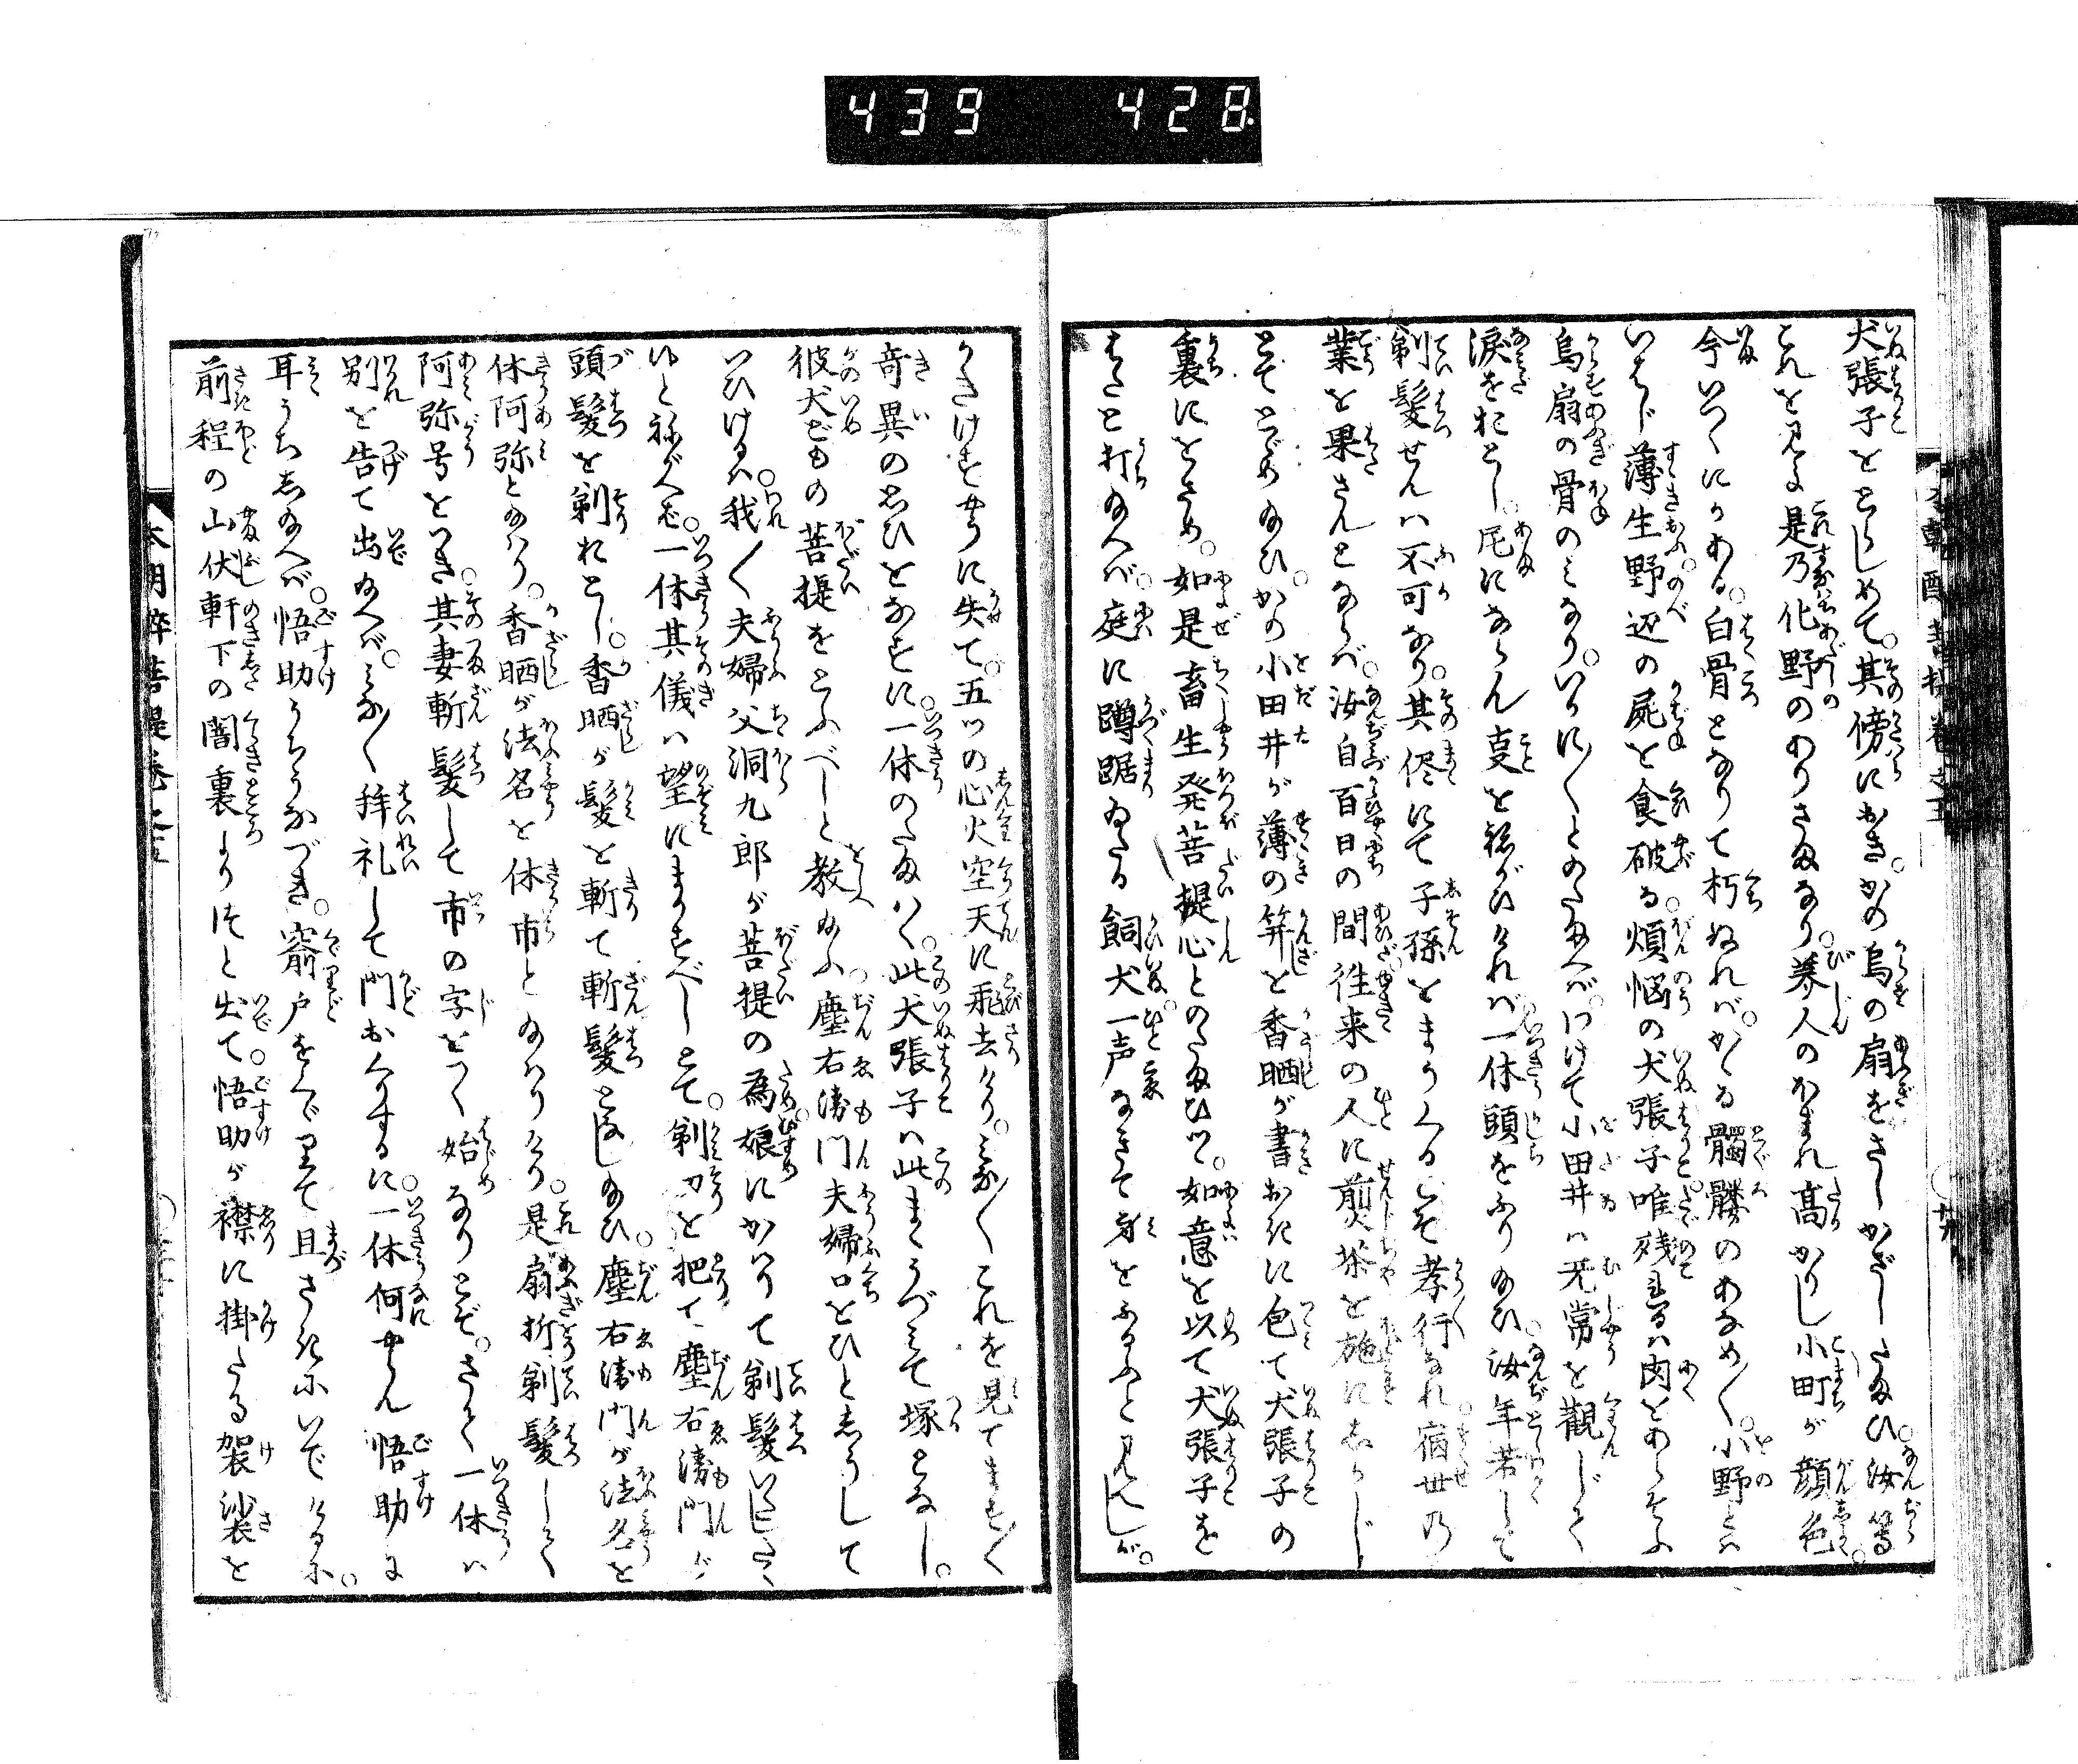 439 428
犬張子をとらしめて。其傍におき。かの烏の扇をさしかざしたまひ。汝等
これを見よ是乃化野のありさまなり。美人のほまれ高かりし小町が顔色
今いづくにかある。白骨となりて朽ぬれば。かゝる髑髏のあなめ〳〵。小野とは
いはじ薄生野辺の屍を食破る。煩悩の犬張子唯残るは肉とあらそふ
烏扇の骨のみなり。いかに〳〵とのたまへば。わけて小田井は无常を観じて
涙をおとし。尼にならん事を願がひければ一休頭をふり給ひ。汝年若して
剃髪せんは不可なり。其侭にて子孫をまうくるこそ孝行なれ宿世乃
業を果さんとならば。汝自百日の間往来の人に煎茶を施にしかじ
とてとゞめ給ひ。かの小田井が薄の笄を香晒が書おきに包て犬張子の
裏にをさめ。如是畜生発菩提心とのたまひつ。如意を以て犬張子を
はたと打給へば。庭に蹲踞ゐたる飼犬一声なきて身をふるふと見へしが。
かきけすやうに失て。五ツの心火空天に飛去けり。みな〳〵これを見てます〳〵
奇異の思ひをなすに。一休のたまはく。此犬張子は此まゝうづみて塚となし。
彼犬どもの菩提をとふべしと教給ふ。塵右衛門夫婦口をひとしうして
いひけるは。我〳〵夫婦父洞九郎が菩提の為。娘にかはりて剃髪いたしたく
ゆと祢がへば。一休其儀は望にまかすべしとて。剃刀を把て塵右衛門が
頭髪を剃おとし。香晒が髪を斬て斬髪となし給ひ。塵右衛門が法名を
休阿弥と給はり。香晒が法名を休市と給はりけり。是扇折剃髪して
阿弥号をつき其妻斬髪して市の字をつく始なりとぞ。さて一休は
別を告て出給へば。みな〳〵拝礼して門おくりするに。一休何やらん悟助に
耳うちし給へば。悟助うちうなづき。窬戸をくゞりて且さきにいでけるに。
前程の山伏軒下の闇裏よりぬと出て。悟助が襟に掛たる袈裟を
本朝酔菩提巻之五